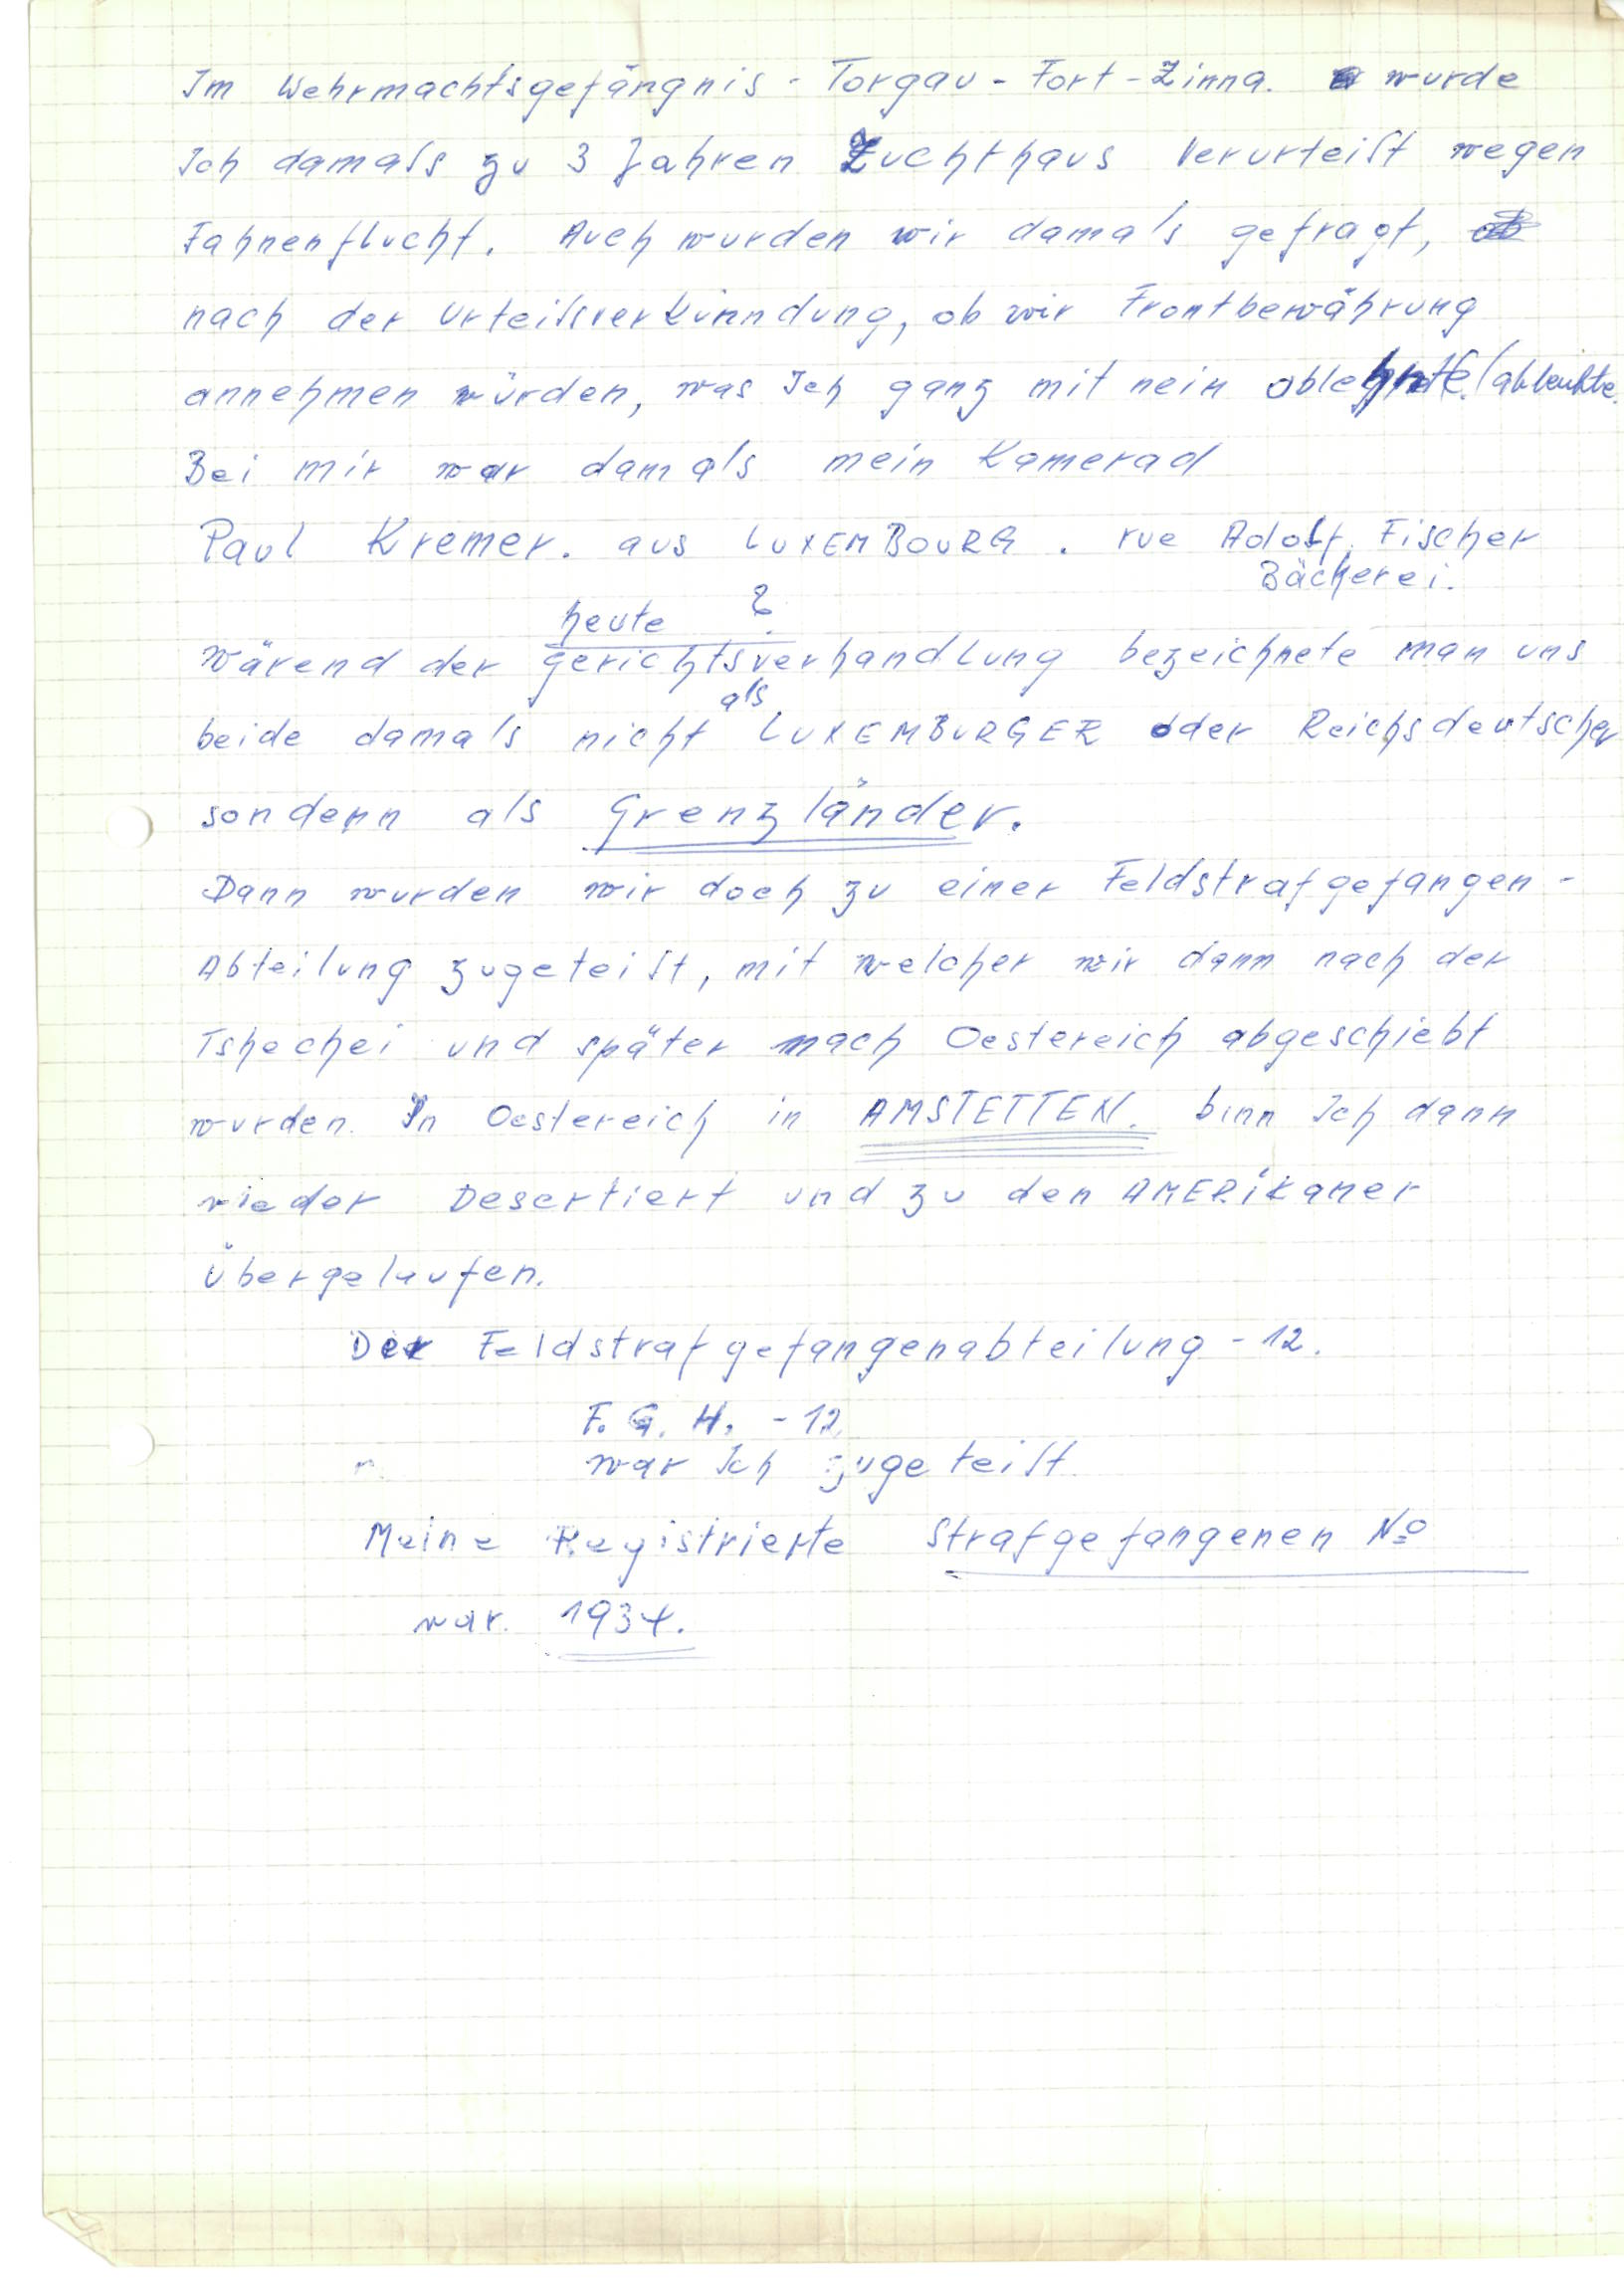 Im Wehrmachtsgefängnis - Torgau - Fort - Zinna. wurde
Ich damals zu 3 Jahren Zuchthaus Verurteilt wegen
Fahnenflucht. Auch wurden wir damals gefragt, ob
nach der Urteilsverkünndung, ob wir Frontbewährung
annehmen würden, was Ich ganz mit nein ablehnte.
Bei mir war damals mein Kamerad
Paul Kremer. aus LUXEMBOURG. rue Adolf. Fischer
Bäckerei.
heute ?
wärend der gerichtsverhandlung bezeichnete man uns
als
beide damals nicht LUXEMBURGER oder Reichsdeutscher
sondenn als Grenzländer.
Dann wurden wir doch zu einer Feldstrafgefangen -
Abteilung zugeteilt, mit welcher wir dann nach der
Tshechei und später nach Oestereich abgeschiebt
wurden. In Oestereich in AMSTETTEN. binn Ich dann
wieder Desertiert und zu den AMERiKaner
übergelaufen.
Der Feldstrafgefangenabteilung - 12.
F. G. H. - 12
war Ich zugeteilt
Meine Registrierte Strafgefangenen No
war. 1934.